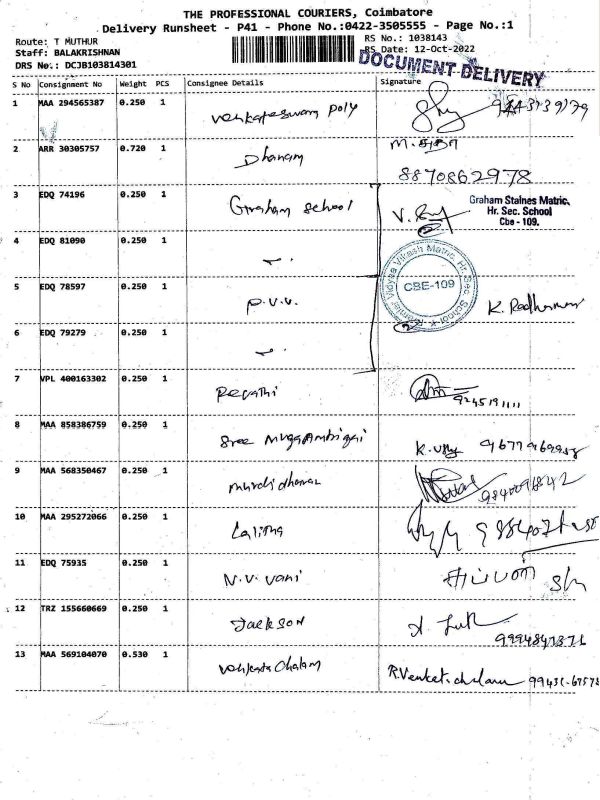 THE PROFESSIONAL COURIERS, Coimbatore
Delivery Runsheet - P41 - Phone No.:0422-3505555 - Page No.:1
Route: T MUTHUR
RS No.: 1038143
Staff: BALAKRISHNAN
RS Date: 12-Oct-2022
DRS No.: DCJB103814301
DOCUMENT DELIVERY
S No Consignment No Weight PCS Consignee Details Signature
1 MAA 294565387 0.250 1 Venkateswara Poly
2 ARR 30305757 0.720 1 Dhanam M.
8870862978
3 EDQ 74196 0.250 1 Graham School V.
Graham Staines Matric.
Hr. Sec. School
Cbe - 109.
4 EDQ 81090 0.250 1
Vidyaa Vikash Matric. Hr. Sec. School
CBE-109
5 EDQ 78597 0.250 1 P.V.V. K.
6 EDQ 79279 0.250 1
7 VPL 400163302 0.250 1 Revathi
9245191111
8 MAA 858386759 0.250 1 Sree Mugaambigai K.
9 MAA 568350467 0.250 1 Muralidharan
10 MAA 295272066 0.250 1 Lalitha
11 EDQ 75935 0.250 1 N.V. Vani
12 TRZ 155660669 0.250 1 Jackson
13 MAA 569104070 0.530 1 Venkatachalam R.Venketachalam 99431-67578